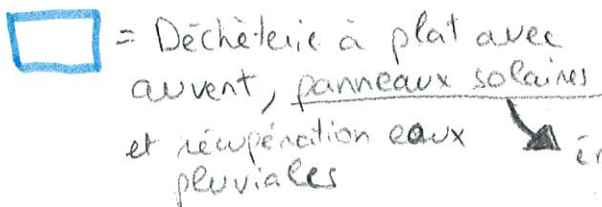 = Déchèterie à plat avec
auvent, panneaux solaires
et récupération eaux
pluviales